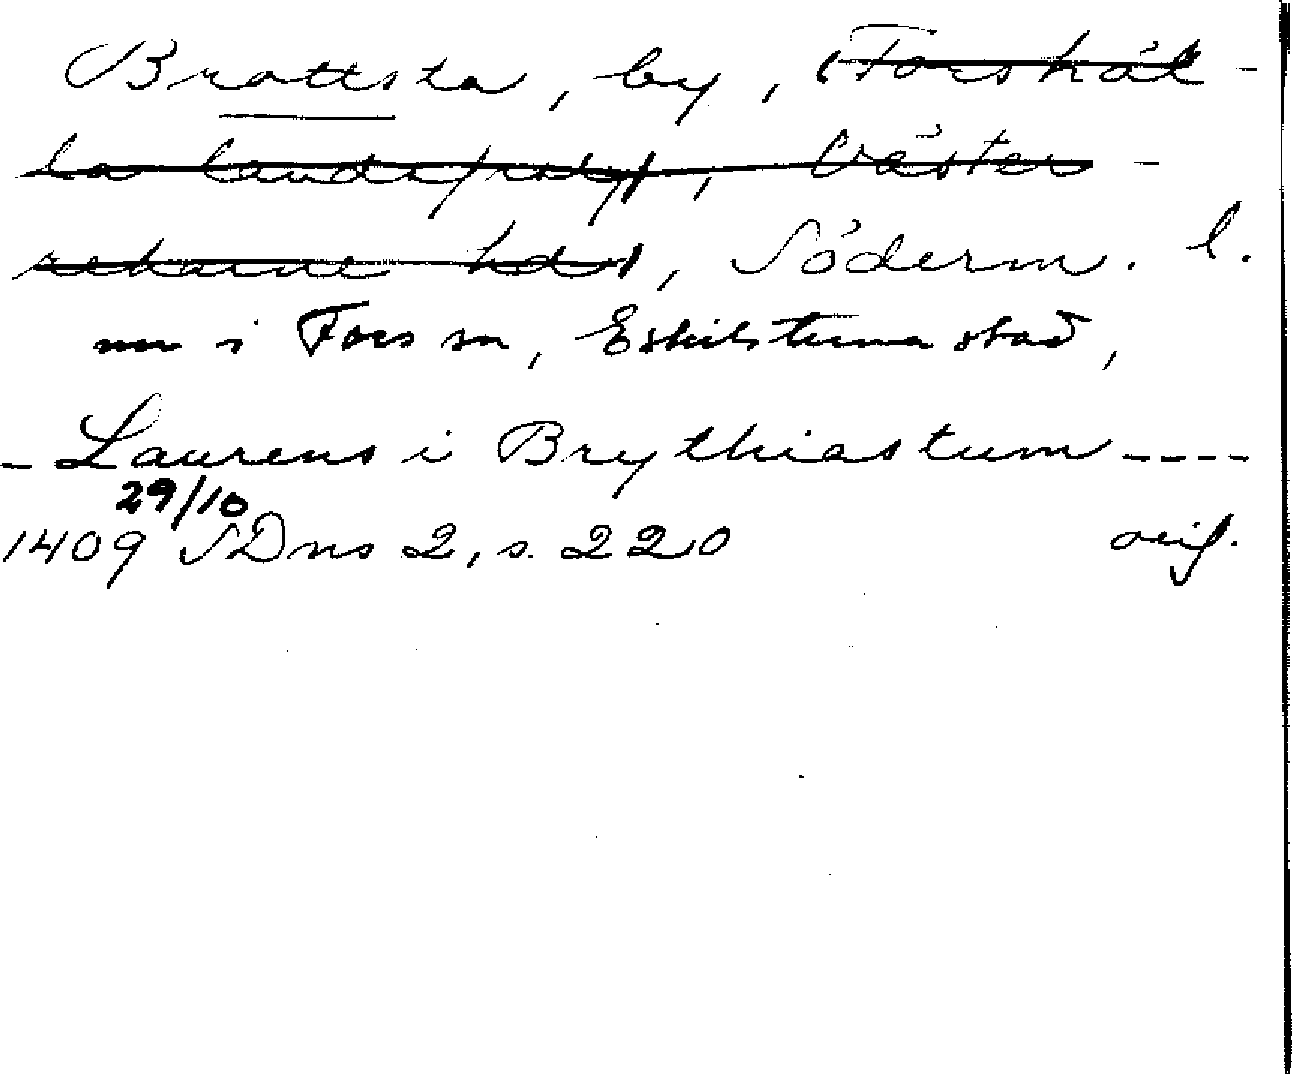 Brottsta, by, (Forskäl-
la landsförs), Väster-
rekarne hd), Söderm. l.
nu i Fors sn, Eskilstuna stad,
- Laurens i Brythiastum ----
29/10
1409 SDns 2, s. 220 orig.